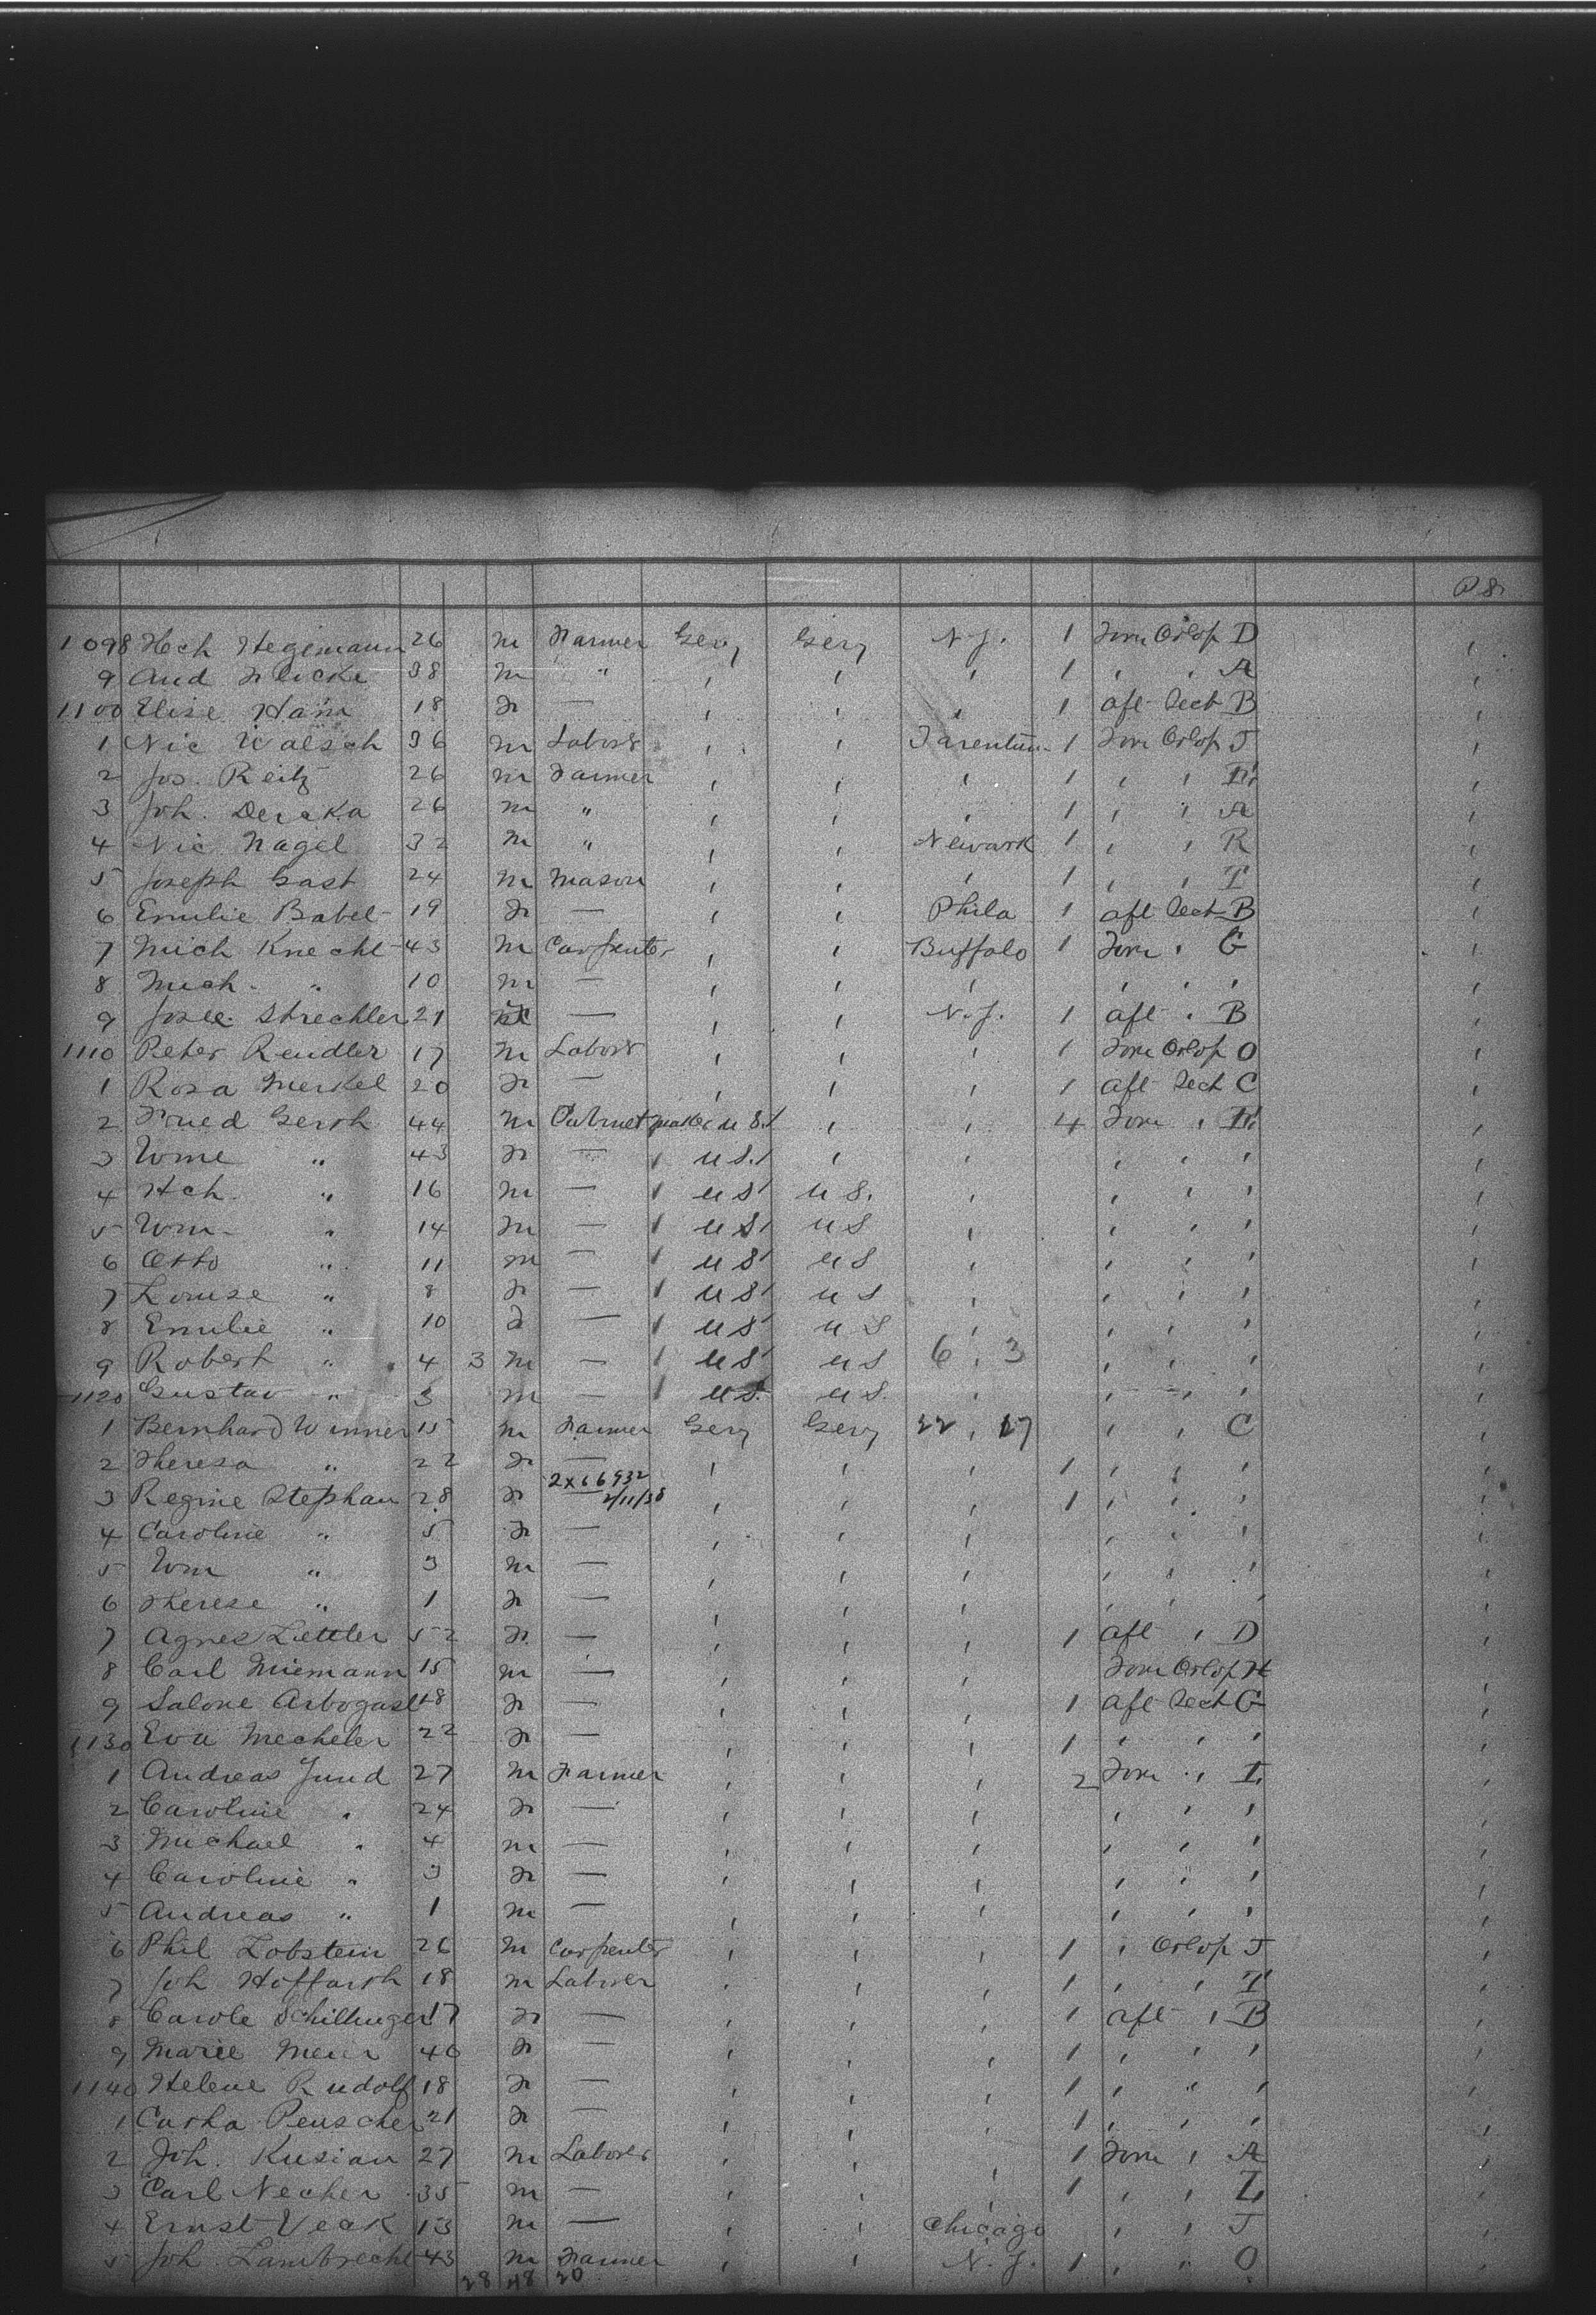 P 8.
1098 Hch Hegemann 26 m Farmer Gery Gery N.Y. 1 Forw Orlop D
9 Aud Fricke 38 m " , , , 1 , , A
1100 Elise Ham 18 f — , , , 1 aft Deck B
1 Nic Walsch 36 m Labor , , Tarentum 1 Forw Orlop J
2 Jos. Reitz 26 m Farmer , , , 1 , ,
3 Joh. Deraka 26 m " , , , 1 , " A
4 Nic Nagel 32 m " , , Newark 1 , , R
5 Joseph Gast 24 m Mason , , , 1 , , T
6 Emilie Babel 19 f — , , Phila 1 aft Deck B
7 Mich Knecht 43 m Carpenter , , Buffalo 1 Forw , G
8 Mich " 10 m — , , , , , ,
9 Strechler 21 — , , N.Y. 1 aft , B
1110 Peter Rendler 17 m Labor , , , 1 Forw Orlop O
1 Rosa Merkel 20 f — , , , 1 aft Deck C
2 Fried Gerth 44 m Cabinetmaker U S. , , 4 Forw ,
3 Wme " 43 f — 1 U S. , , , , ,
4 Hch. " 16 m — 1 U S U S. , , , ,
5 Wm " 14 m — 1 U S U S , , , ,
6 Otto " 11 m — 1 U S U S , , , ,
7 Louise " 8 f — 1 U S U S , , , ,
8 Emilie " 10 f — 1 U S U S , , , ,
9 Robert " 4 3 m — 1 U S U S 6 , 3 , , ,
1120 Gustav " 3 m — 1 U S. U S. , , , ,
1 Bernhard Winner 15 m Farmer Gery Gery 22 , 17 , , C
2 Theresa " 22 f — , , , 1 , , ,
2x66932
3 Regine Stephan 28 f — 2/11/38 , , , 1 , , ,
4 Caroline " 5 f — , , , , , ,
5 Wm " 3 m — , , , , , ,
6 Therese " 1 f — , , , , , ,
7 Agnes Lettler 52 f — , , , 1 aft , D
8 Carl Niemann 15 m — , , , Forw Orlop H
9 Salone Arbogast 18 f — , , , 1 aft Deck G
1130 Eva Mecheler 22 f — , , , 1 , , ,
1 Andreas Jund 27 m Farmer , , , 2 Forw , I
2 Caroline " 24 f — , , , , , ,
3 Michael " 4 m — , , , , , ,
4 Caroline " 3 f — , , , , , ,
5 Andreas " 1 m — , , , , , ,
6 Phil Lobstein 26 m Carpenter , , , 1 , Orlop J
7 Joh Hoffarth 18 m Laborer , , , 1 , , T
8 Carole Schillinger 17 f — , , , 1 aft , B
9 Marie Meir 40 f — , , , 1 , , ,
1140 Helene Rudolf 18 f — , , , 1 , " ,
1 Carha Penscher 21 f — , , , 1 , , ,
2 Joh. Kusian 27 m Laborer , , , 1 Forw , A
3 Carl Necher 35 m — , , , 1 , , L
4 Ernst Veak 13 m — , , Chicago , , J
5 Joh. Lambrecht 43 m Farmer , , N.Y. 1 , " O
28 48 20